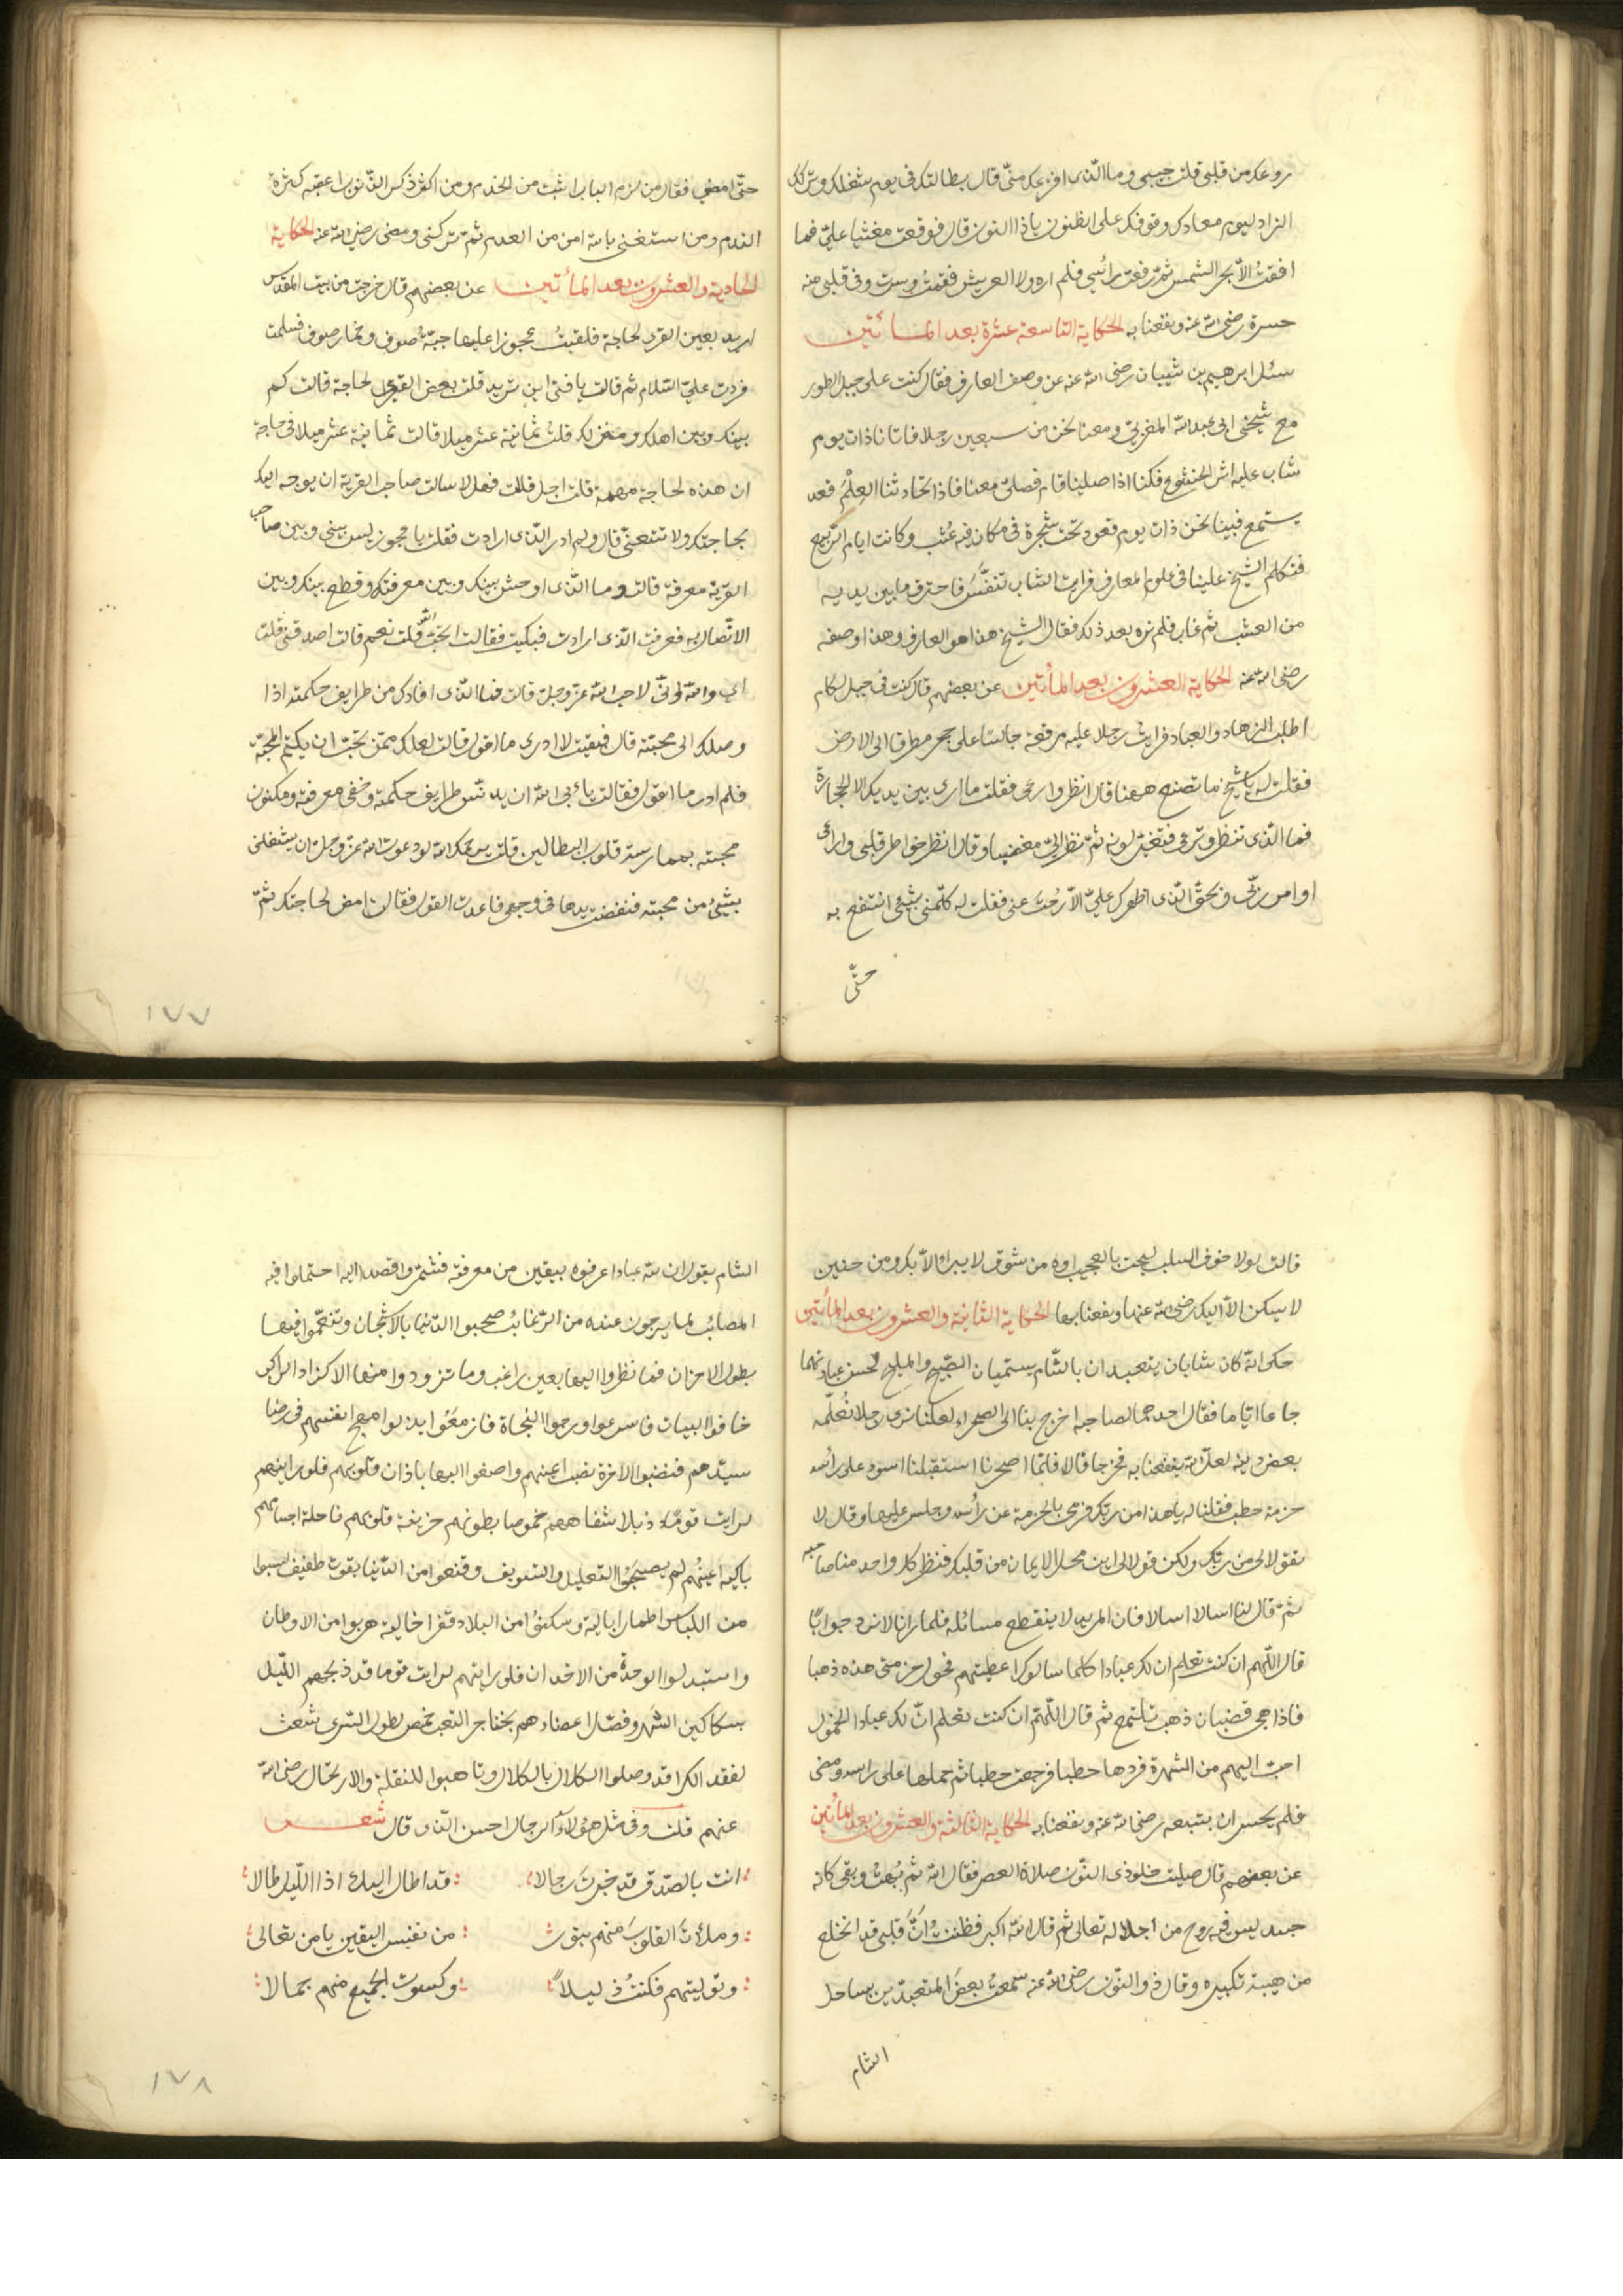 روعك من قلبى قلت حبيبى وما الذى افزعك منى قال بطالتك فى يوم شغلك وترك
الزاد ليوم معادك ووقوفك على الظنون ياذا النون قال فوقعت مغشيا على فما
افقت الا بحر الشمس ثم رفعت رأسى فلم اره ولا العريش فقمت وسرت وفى قلبى منه
حسرة رضى الله عنه ونفعنا به الحكاية التاسعة عشرة بعد المائتين
سئل ابرهيم بن شيبان رضى الله عنه عن وصف العارف فقال كنت على جبل الطور
مع شيخى ابى عبد الله المغربى ومعنا نحن من سبعين رجلا فاتانا ذات يوم
شاب عليه اثر الخشوع فكنا اذا صلينا قام فصلى معنا فاذا تحادثنا العلم قعد
يستمع فبينا نحن ذات يوم قعود تحت شجرة فى مكان فيه عشب وكانت ايام الربيع
فتكلم الشيخ علينا فى علوم المعارف فرايت الشاب تنفس فاحترق ما بين يديه
من العشب ثم غاب فلم نره بعد ذلك فقال الشيخ هذا هو العارف وهذا وصفه
رضى الله عنه الحكاية العشرون بعد المأتين عن بعضهم قال كنت فى جبل لكام
اطلب الزهاد والعباد فرايت رجلا عليه مرقعة جالسا على حجر مطرقا الى الارض
فقلت له يا شيخ ما تصنع ههنا قال انظر وارعى فقلت ما ارى بين يديك الا الحجارة
فما الذى تنظر وترعى فتغير لونه ثم نظر الى مغضبا وقال انظر خواطر قلبى وارعى
اوامر ربى وبحق الذى اظهرك على الا رحت عنى فقلت له كلمنى بشئ انتفع به
حتى
حتى امضى فقال من لزم الباب اثبت من الخدم ومن اكثر ذكر الذنوب اعقبه كثرة
الندم ومن استغنى بالله امن من العدم ثم تركنى ومضى رضى الله عنه الحكاية
الحادية والعشرون بعد المأتين عن بعضهم قال خرجت من بيت المقدس
اريد بعض القرى لحاجة فلقيت عجوزا عليها جبة صوف وخمار صوف فسلمت
فردت على السلام ثم قالت يا فتى اين تريد قلت بعض القرى لحاجة قالت كم
بينك وبين اهلك ومنزلك قلت ثمانية عشر ميلا قالت ثمانية عشر ميلا فى حاجة
ان هذه لحاجة مهمة قلت اجل قالت فهلا سالت صاحب القرية ان يوجه اليك
بحاجتك ولا تتعنى قال ولم ادر الذى ارادت فقلت يا عجوز ليس بينى وبين صاحب
القرية معرفة قالت وما الذى اوحش بينك وبين معرفتك وقطع بينك وبين
الاتصال به فعرفت الذى ارادت فبكيت فقالت اتحب الله قلت نعم قالت اصدقنى قلت
اى والله وانى لاحب الله عز وجل قالت فما الذى افادك من طرايف حكمته اذا
وصلك الى محبته قال فبقيت لا ادرى ما اقول قالت لعلك ممن تحب ان يكتم المحبة
فلم ادر ما اقول فقالت يأبى الله ان يدنس طرايف حكمته وخفى معرفته ومكنون
محبته بممارسة قلوب البطالين قلت يرحمك الله لو دعوت الله عز وجل ان يشغلنى
بشئ من محبته فنفضت يدها فى وجهى فاعدت القول فقالت امض لحاجتك ثم
١٧٧
قالت لولا خوف السلب لبحت بالعجب اوه من شوق لا يبرا الا بك ومن حنين
لا يسكن الا اليك رضى الله عنها ونفعنا بها الحكاية الثانية والعشرون بعد المأتين
حكى انه كان شابان يتعبدان بالشام يسميان الصبيح والمليح لحسن عبادتهما
جاعا اياما فقال احدهما لصاحبه اخرج بنا الى الصحراء لعلنا نرى رجلا نعلمه
بعض دينه لعل الله ينفعنا به فخرجا قالا فلما اصحرنا استقبلنا اسود على رأسه
حزمة حطب فقلنا له يا هذا من ربك فرمى بالحزمة عن رأسه وجلس عليها وقال لا
تقولا لى من ربك ولكن قولا لى اين محل الايمان من قلبك فنظر كل واحد منا صاحبه
ثم قال لنا اسالا اسالا فان المريد لا ينقطع مسائله فلما رانا لا نرد جوابا
قال اللهم ان كنت تعلم ان لك عبادا كلما سالوك اعطيتهم فحول حزمتى هذه ذهبا
فاذا هى قضبان ذهب تلتمع ثم قال اللهم ان كنت تعلم ان لك عبادا الخمول
احب اليهم من الشهرة فردها حطبا فرجعت حطبا ثم حملها على راسه ومضى
فلم يجسر ان يتبعه رضى الله عنه ونفعنا به الحكاية الثالثة والعشرون بعد المأتين
عن بعضهم قال صليت خلف ذى النون صلاة العصر فقال الله ثم بهت وبقى كانه
جسد ليس فيه روح من اجلاله تعالى ثم قال الله اكبر فظننت ان قلبى قد انخلع
من هيبة تكبيره وقال ذو النون رضى الله عنه سمعت بعض المتعبدين بساحل
الشام
الشام يقول ان لله عبادا عرفوه بيقين من معرفته فشمروا قصدا اليه احتملوا فيه
المصائب لما يرجون عنده من الرغائب صحبوا الدنيا بالاشجان وتنعموا فيها
بطول الاحزان فما نظروا اليها بعين راغب وما تزودوا منها الا كزاد الراكب
خافوا البيات فاسرعوا ورجوا النجاة فازمعوا بذلوا مهج انفسهم فى رضا
سيدهم فنصبوا الاخرة نصب اعينهم واصغوا اليها باذان قلوبهم فلو رايتهم
لرايت قوما ذبلا شفاههم خموصا بطونهم حزينة قلوبهم ناحلة اجسامهم
باكية اعينهم لم يصحبوا التعليل والتسويف وقنعوا من الدنيا بقوت طفيف لبسوا
من اللباس اطمارا بالية وسكنوا من البلاد قفرا خالية هربوا من الاوطان
واستبدلوا الوحدة من الاخدان فلو رايتهم لرايت قوما قد ذبحهم الليل
بسكاكين السهر وفصل اعضاءهم بخناجر التعب خمص لطول السرى شعث
لفقد الكرا قد وصلوا الكلال بالكلال وتاهبوا للنقلة والارتحال رضى الله
عنهم قلت وفى مثل هؤلاء الرجال احسن الذى قال شعر
انت بالصدق قد خبرت رجالا قد اطال البكاء اذا الليل طالا
وملأت القلوب منهم بنور من نفيس اليقين يا من تعالى
وتوليتهم فكنت ذليلا وكسوت الجميع منهم جمالا
١٧٨